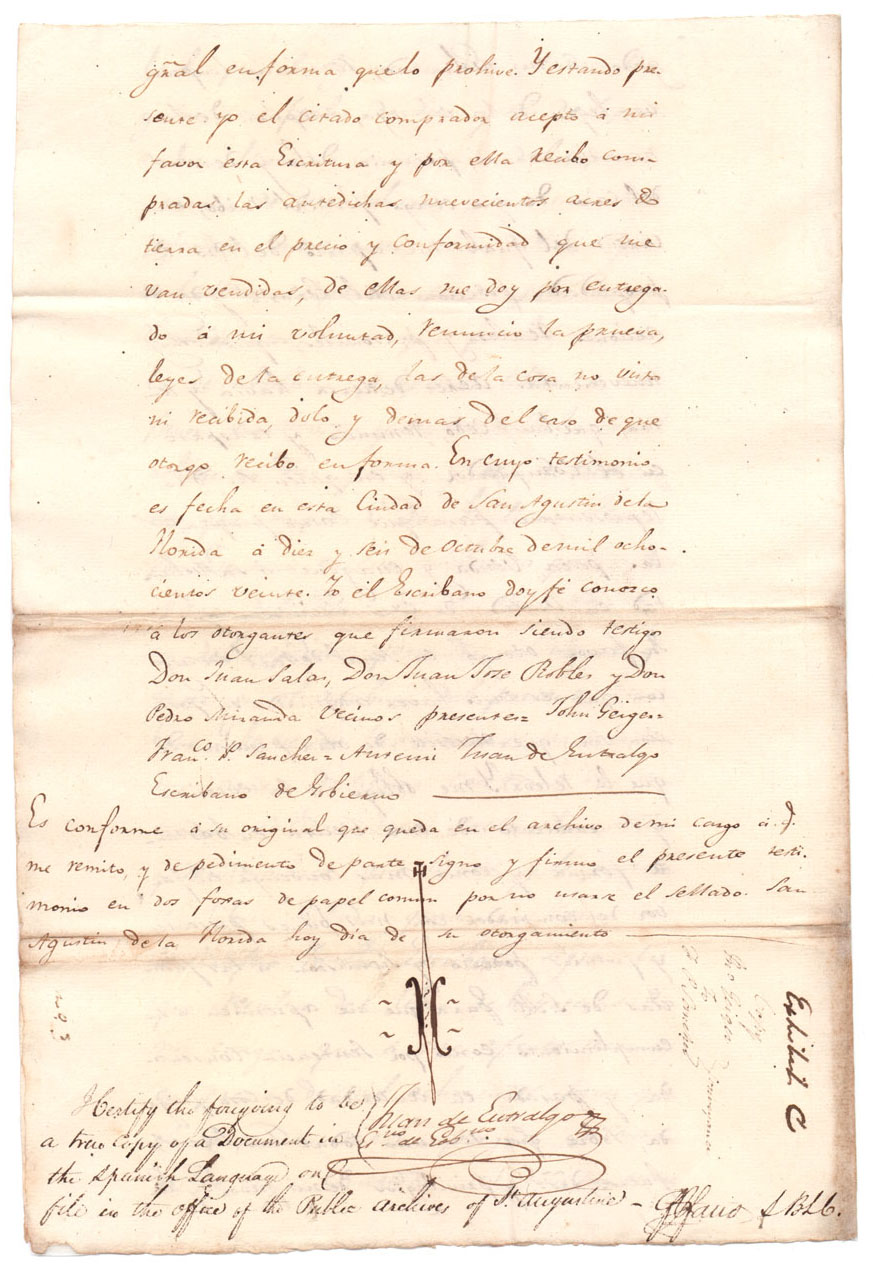 gñal en forma que lo prohive. Y estando pre-
sente yo el citado comprador acepto á mi
favor esta Escritura y por ella recibo com-
pradas las antedichas nuevecientos acres de
tierra en el precio y conformidad que me
van vendidas, de ellas me doy por entrega-
do á mi voluntad, renuncio la prueva,
leyes de la entrega, las de la cosa no vista
ni recibida, dolo, y demas del caso de que
otorgo recibo en forma. En cuyo testimonio
es fecha en esta Ciudad de San Agustin de la
Florida á diez y seis de Octubre de mil ocho-
cientos veinte. Yo el Escribano doy fé conozco
á los otorgantes que firmaron siendo testigos
Don Juan Salas, Don Juan Jose Robles y Don
Pedro Miranda Vecinos presentes= John Geiger=
Franco. R. Sanchez= Ante mi Juan de Entralgo
Escribano de Gobierno
Es conforme á su original que queda en el archivo de mi cargo á q.
me remito, y de pedimento de parte signo y firmo el presente testi-
monio en dos foxas de papel comun por no usarse el sellado. San
Agustin de la Florida hoy dia de su otorgamiento
Exhibit C
Copy
Conveyance
Jno Geiger
To
F. R. Sanchez
I Certify the foregoing to be
a true Copy of a Document in
the Spanish Language on
file in the office of the Public archives of St Augustine -
Juan de Entralgo
Esno de Gobno